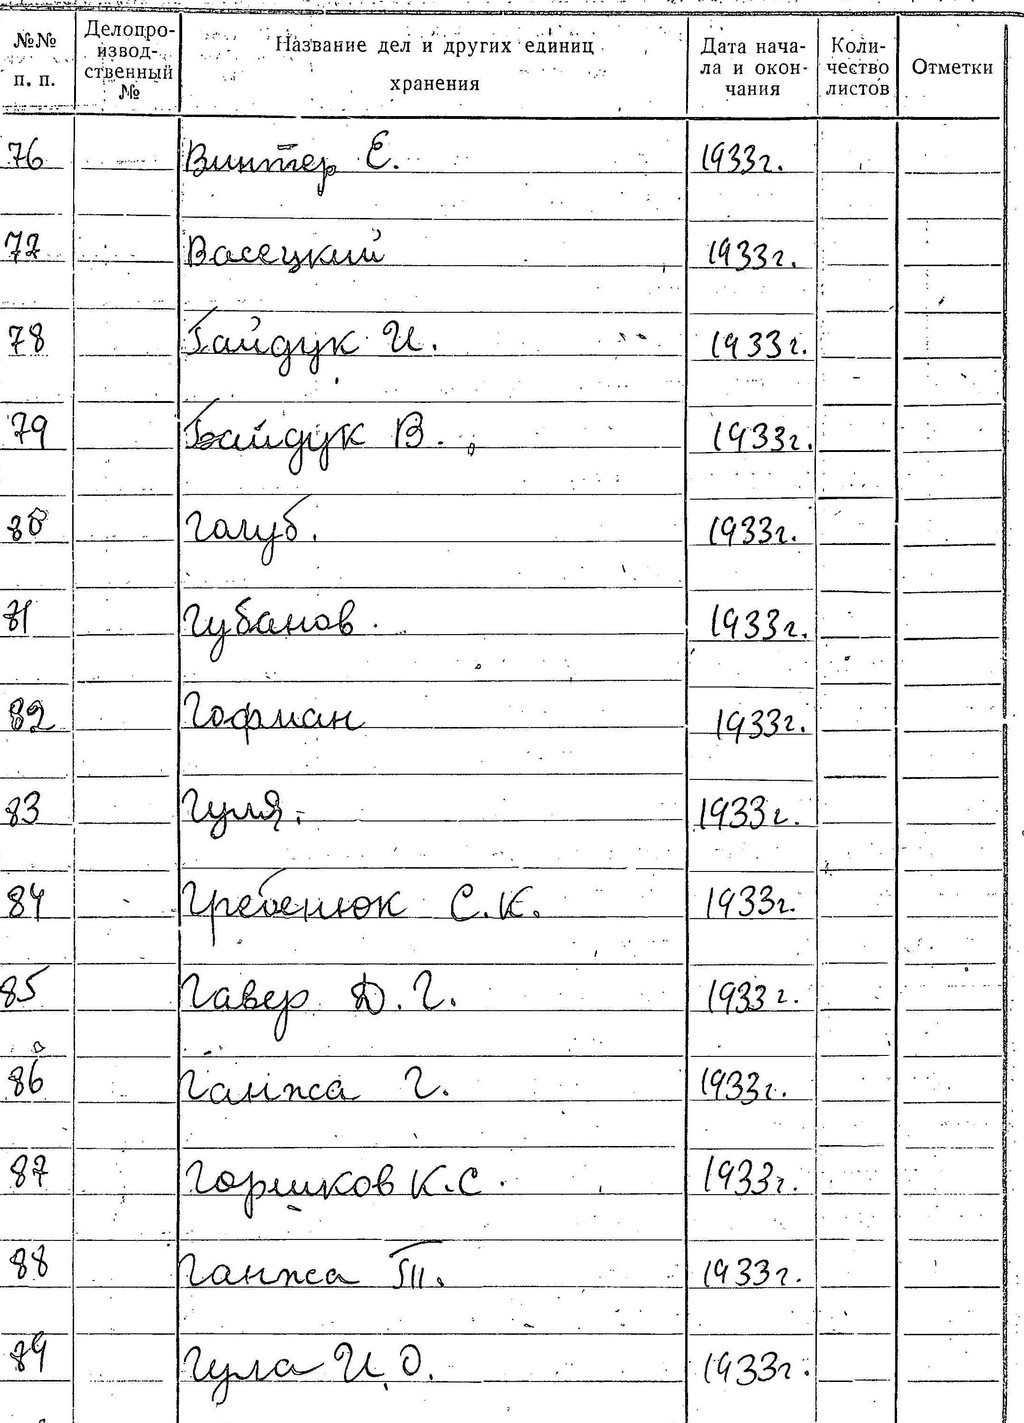 №№ п. п. Делопроизводственный № Название дел и других единиц хранения Дата начала и окончания Количество листов Отметки
76 Винтер Е. 1933г.
77 Васецкий 1933г.
78 Гайдук И. 1933г.
79 Гайдук В. 1933г.
80 Голуб. 1933г.
81 Губанов. 1933г.
82 Гофман 1933г.
83 Гуля. 1933г.
84 Гребенюк С.К. 1933г.
85 Гавер Д.Г. 1933г.
86 Ганжа Г. 1933г.
87 Горшков К.С. 1933г.
88 Ганжа П. 1933г.
89 Гула И.О. 1933г.